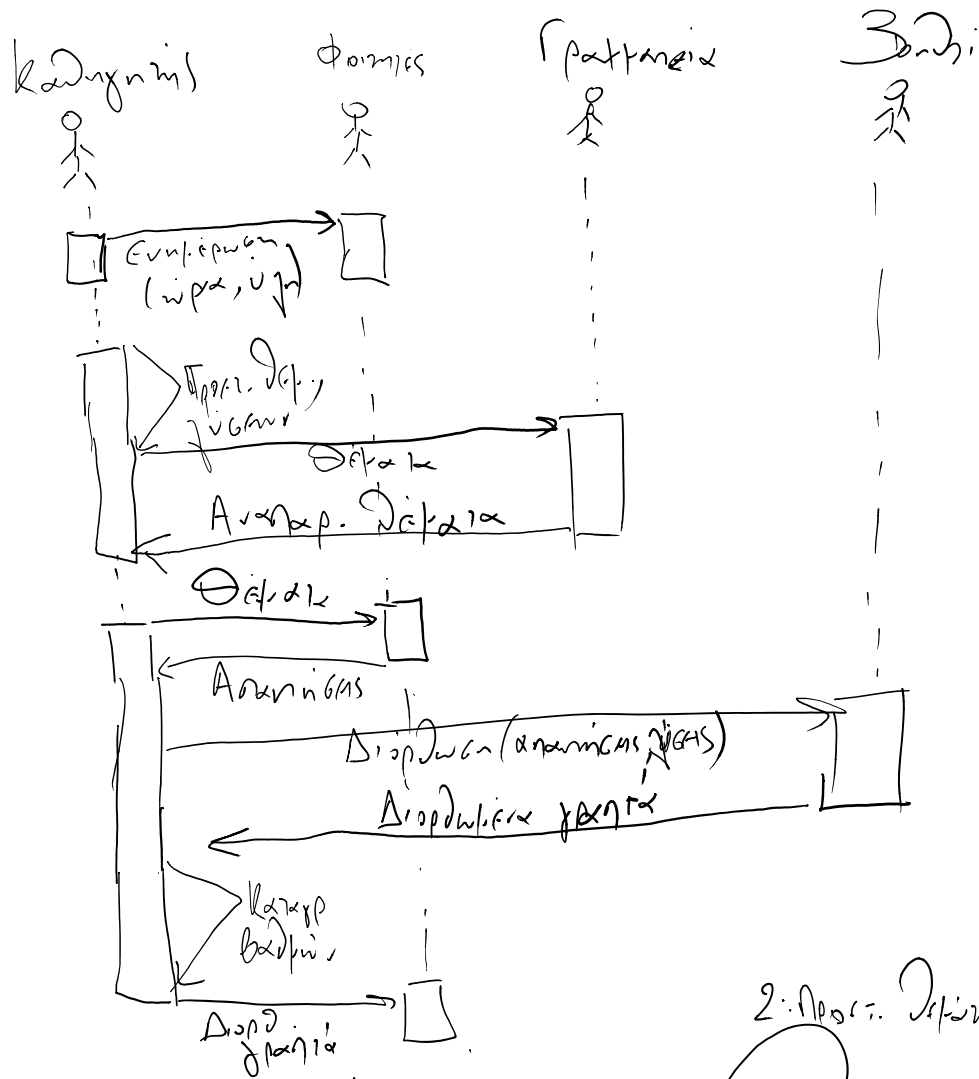 Καθηγητής
Φοιτητές
Γραμματεία
Βοηθ
Ενημέρωση
(ώρα, ύλη)
Προετ. θεμ.,
λύσεων
Θέματα
Αναπαρ. θέματα
Θέματα
Απαντήσεις
Διόρθωση (απαντήσεις, λύσεις)
Διορθωμένα γραπτά
Καταγρ
βαθμών
Διορθ
γραπτά
2: Προετ. θεμάτ